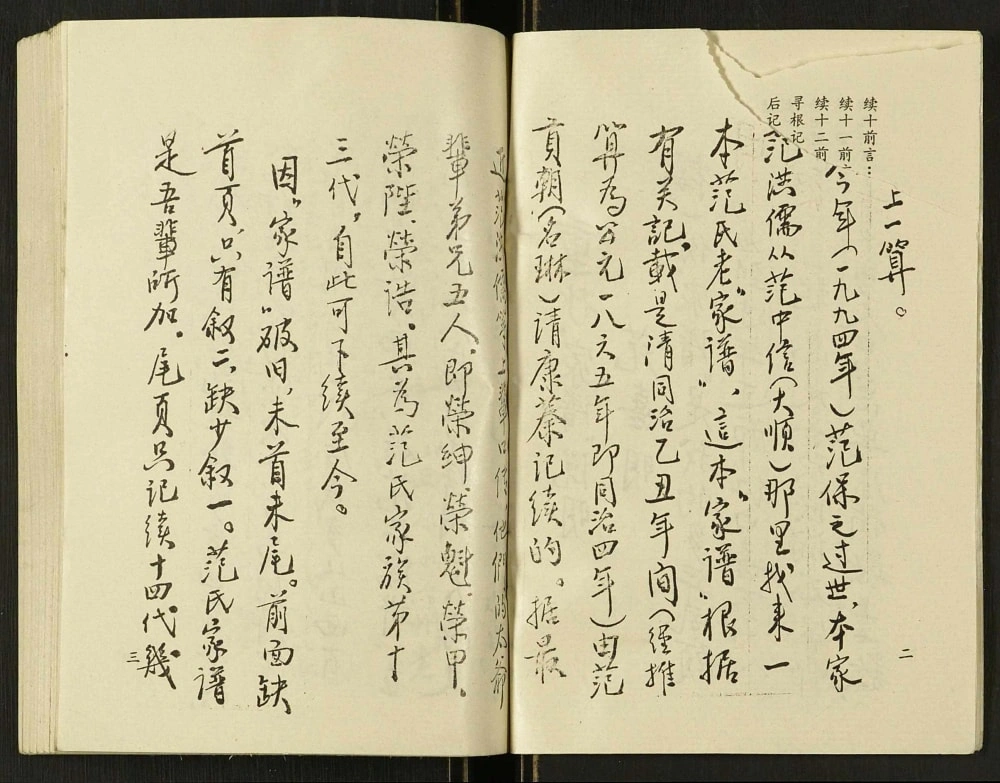 续十前言：
续十一前
续十二前
寻根记
后记
上一算。
今年（一九九四年）范保之过世，本家
范洪儒从范中信（大顺）那里找来一
本范氏老“家谱”，这本“家谱”根据
有关记载是清同治乙丑年间（经推
算为公元一八六五年即同治四年）由范
貢朝（名琳）请康蓁记续的。据最
二
上輩口传，他們的太爺
輩弟兄五人，即榮紳、榮魁、榮甲、
榮陞、榮誥。其為范氏家族第十
三代，自此可下续至今。
因“家谱”破旧，未首未尾。前面缺
首頁，只有叙二，缺少叙一。范氏家谱
是吾輩所加。尾頁只记续十四代，幾
三